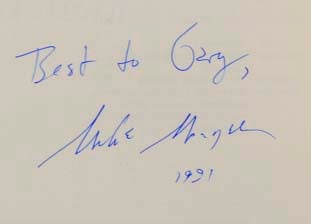 Best to Gary,
Mike
1991